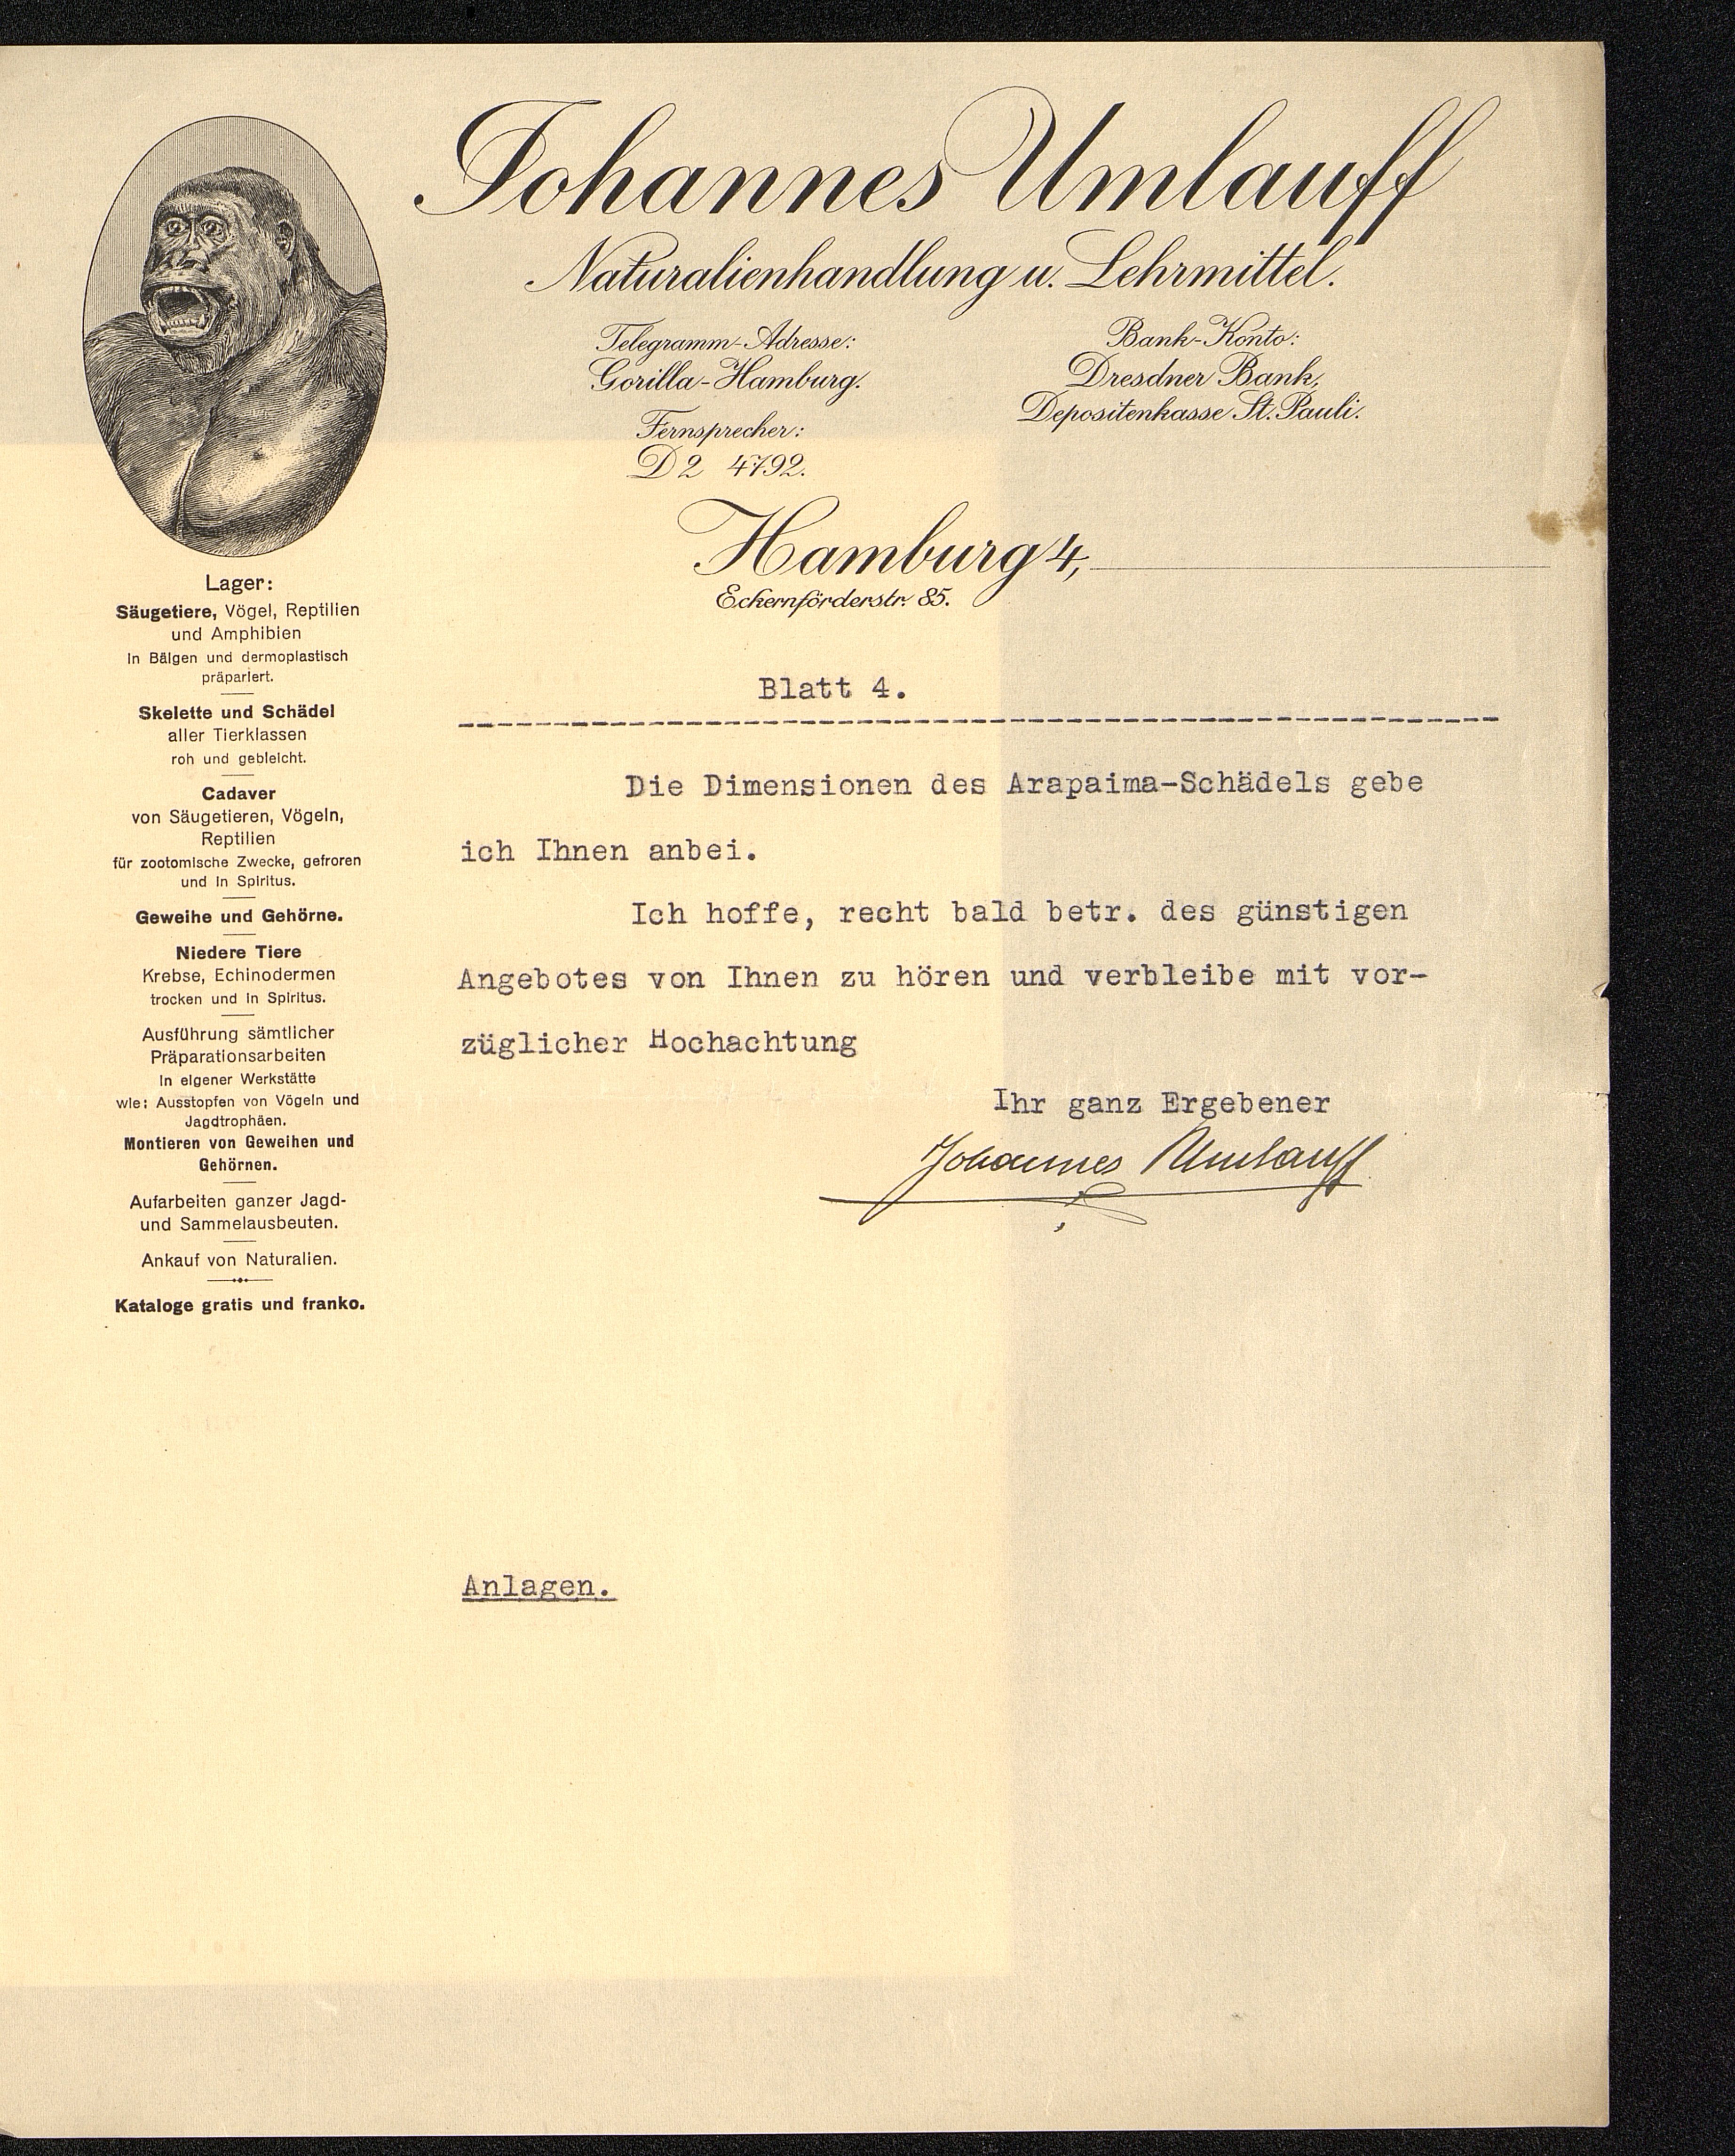 Johannes Umlauff
Naturalienhandlung u. Lehrmittel.
Telegramm-Adresse:
Gorilla-Hamburg.
Fernsprecher:
D2 4792.
Bank-Konto:
Dresdner Bank,
Depositenkasse St. Pauli.
Hamburg 4,
Eckernförderstr. 85.
Lager:
Säugetiere, Vögel, Reptilien
und Amphibien
in Bälgen und dermoplastisch
präpariert.
Skelette und Schädel
aller Tierklassen
roh und gebleicht.
Cadaver
von Säugetieren, Vögeln,
Reptilien
für zootomische Zwecke, gefroren
und in Spiritus.
Geweihe und Gehörne.
Niedere Tiere
Krebse, Echinodermen
trocken und in Spiritus.
Ausführung sämtlicher
Präparationsarbeiten
in eigener Werkstätte
wie: Ausstopfen von Vögeln und
Jagdtrophäen.
Montieren von Geweihen und
Gehörnen.
Aufarbeiten ganzer Jagd-
und Sammelausbeuten.
Ankauf von Naturalien.
Kataloge gratis und franko.
Blatt 4.
Die Dimensionen des Arapaima-Schädels gebe
ich Ihnen anbei.
Ich hoffe, recht bald betr. des günstigen
Angebotes von Ihnen zu hören und verbleibe mit vor-
züglicher Hochachtung
Ihr ganz Ergebener
Johannes Umlauff
Anlagen.